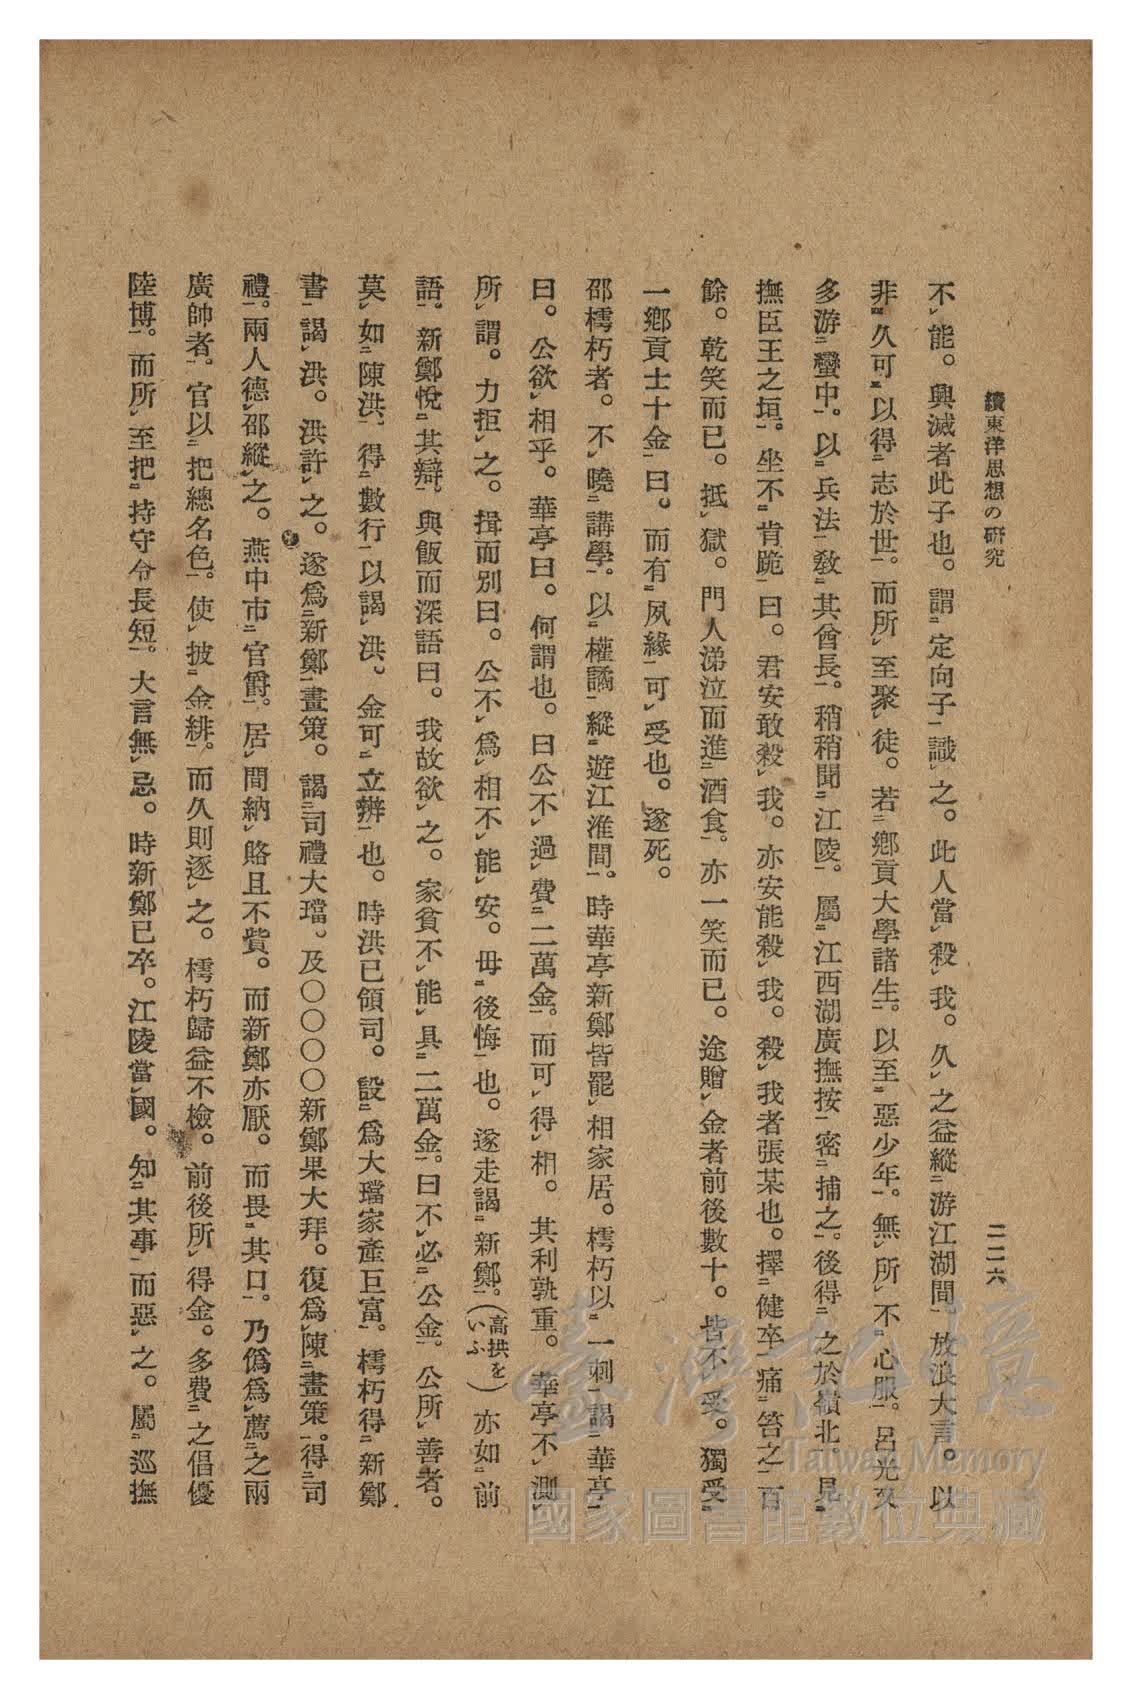 續東洋思想の研究
二二六
不㆑能。興滅者此子也。謂㆓定向子㆒識㆑之。此人當㆑殺㆑我。久㆑之益縱㆓游江湖間㆒放浪大言。以
非㆔久可㆓以得㆓志於世㆒。而所㆑至聚㆑徒。若㆓鄉貢大學諸生㆒。以至㆓惡少年㆒。無㆑所㆑不㆓心服㆒。呂光又
多游㆓蠻中㆒。以㆓兵法㆒教㆓其酋長㆒。稍稍聞㆓江陵㆒。屬㆓江西湖廣撫按㆒密㆓捕之㆒。後得㆓之於嶺北㆒。見㆓
撫臣王之垣㆒。坐不㆓肯跪㆒曰。君安敢殺㆑我。亦安能殺㆑我。殺㆑我者張某也。擇㆓健卒㆒痛㆓笞之㆒百
餘。乾笑而已。抵㆑獄。門人涕泣而進㆓酒食㆒。亦一笑而已。途贈㆑金者前後數十。皆不㆑受。獨受㆓
一鄉貢士十金㆒曰。而有㆓夙緣㆒可㆑受也。遂死。
邵樗朽者。不㆑曉㆓講學㆒。以㆓權譎㆒縱㆓遊江淮間㆒。時華亭新鄭皆罷㆑相家居。樗朽以㆓一刺㆒謁㆓華亭㆒
曰。公欲㆑相乎。華亭曰。何謂也。曰公不㆑過㆑費㆓二萬金㆒。而可㆑得㆑相。其利孰重。華亭不㆑測㆑
所㆑謂。力拒㆑之。揖而別曰。公不㆑爲㆑相不㆑能㆑安。毋㆓後悔㆒也。遂走謁㆓新鄭㆒。（高拱をいふ）亦如㆓前
語㆒。新鄭悅㆓其辯㆒。與飯而深語曰。我故欲㆑之。家貧不㆑能㆑具㆓二萬金㆒。曰不㆑必㆓公金㆒。公所㆑善者。
莫㆑如㆓陳洪㆒。得㆓數行㆒以謁㆑洪。金可㆓立辨㆒也。時洪已領司。設㆓爲大璫家產巨富㆒。樗朽得㆓新鄭
書㆒謁㆑洪。洪許㆑之。遂爲㆓新鄭㆒畫策。謁㆓司禮大璫㆒。及〇〇〇〇新鄭果大拜。復爲㆑陳㆓畫策㆒。得㆓司
禮㆒。兩人德㆑邵縱㆑之。燕中市㆓官爵㆒。居㆑間納㆑賂且不㆑貲。而新鄭亦厭。而畏㆓其口㆒。乃僞爲㆑薦㆓之兩
廣帥者㆒。官以㆓把總名色㆒。使㆑披㆓金緋㆒。而久則逐㆑之。樗朽歸益不㆑檢。前後所㆑得金。多費㆓之倡優
陸博㆒。而所㆑至把㆓持守令長短㆒。大言無㆑忌。時新鄭已卒。江陵當㆑國。知㆓其事㆒而惡㆑之。屬㆓巡撫
臺灣記憶
Taiwan Memory
國家圖書館數位典藏